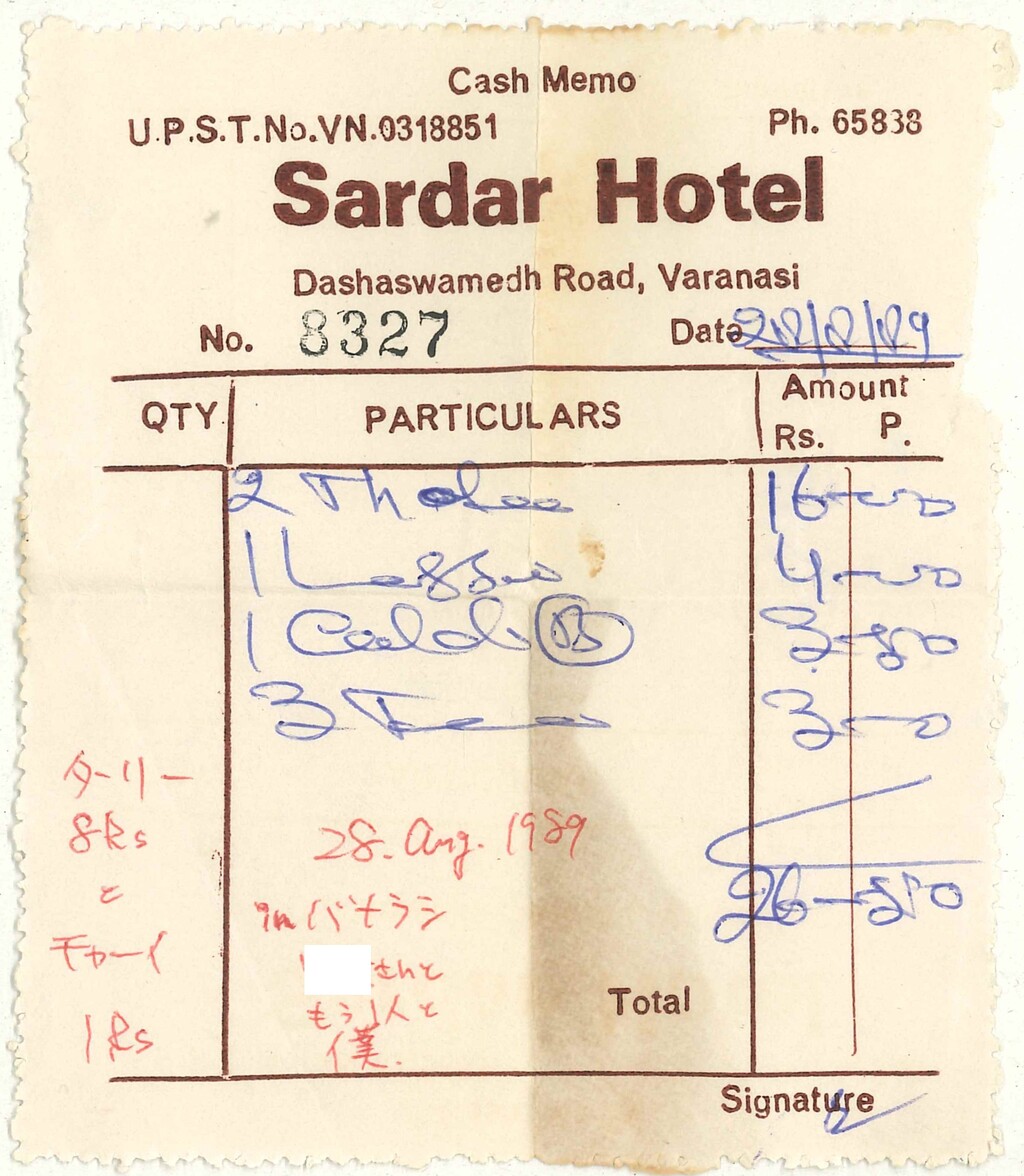 Cash Memo
U.P.S.T.No.VN.0318851 Ph. 65838
Sardar Hotel
Dashaswamedh Road, Varanasi
No. 8327 Date 28/8/89
QTY PARTICULARS Amount
Rs. P.
2 Thalee 16-00
1 Lassi 4-00
1 Cold (B) 3-50
3 Tea 3-00
26-50
ターリー
8Rs
と
チャーイ
1Rs
28. Aug. 1989
in バナラシ
さんと
もう1人と
僕.
Total
Signature